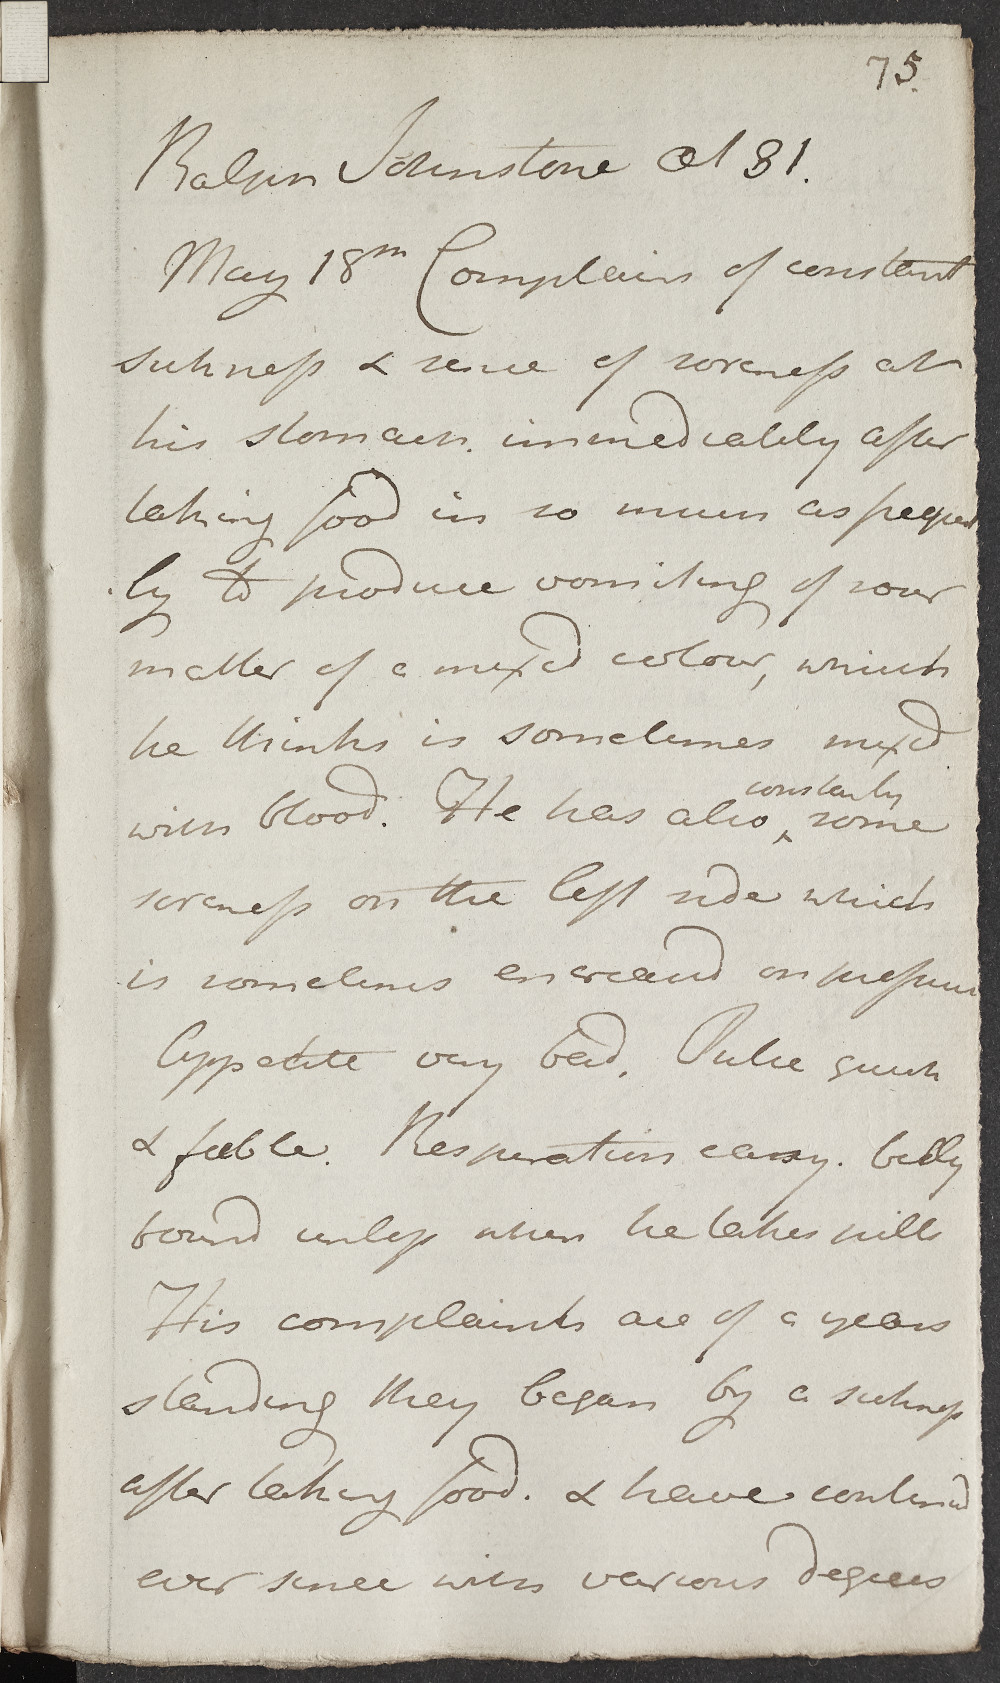 75.
Ralph Johnstone Æt 31.
May 18th Complains of constant
sickness & sense of soreness at
his stomach immediately after
taking food in so much as frequent
ly to produce vomiting of sour
matter of a mixd colour, which
he thinks is sometimes mixd
constantly
with blood. He has also ‸ some
soreness on the left side which
is sometimes encreasd on pressure
Appetite very bad. Pulse quick
& feeble. Respiration easy. belly
bound unless when he takes pills
His complaints are of a years
standing they began by a sickness
after taking food. & have continued
ever since with various degrees